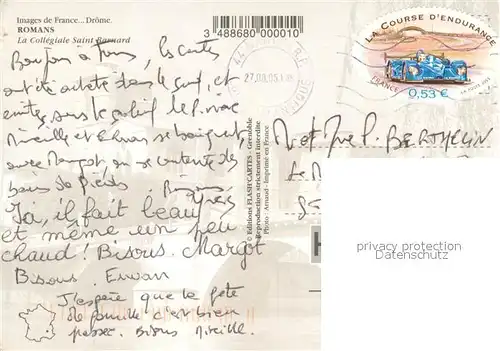 Images de France... Drôme.
ROMANS
La Collégiale Saint Barnard
3 488680 000010
27.08.05
LA COURSE D'ENDURANCE
FRANCE
0,53 €
Bonjour à Tous, les cartes
ont été acheté dans le sud, et
écrites sous le soleil
Mireille et Erwan se baignent
avec Margot, on se contente des
bains de Pieds. Bisous
Yves
Ici, il fait beau
et même un peu
chaud! Bisous. Margot
Bisous. Erwan
J'espère que la fête
de famille c'est bien
passée. Bisous Mireille.
© Editions FLASH'CARTES - Grenoble
Reproduction strictement interdite
Photo : Arnaud - Imprimé en France
BERTHELIN
privacy protection
Datenschutz